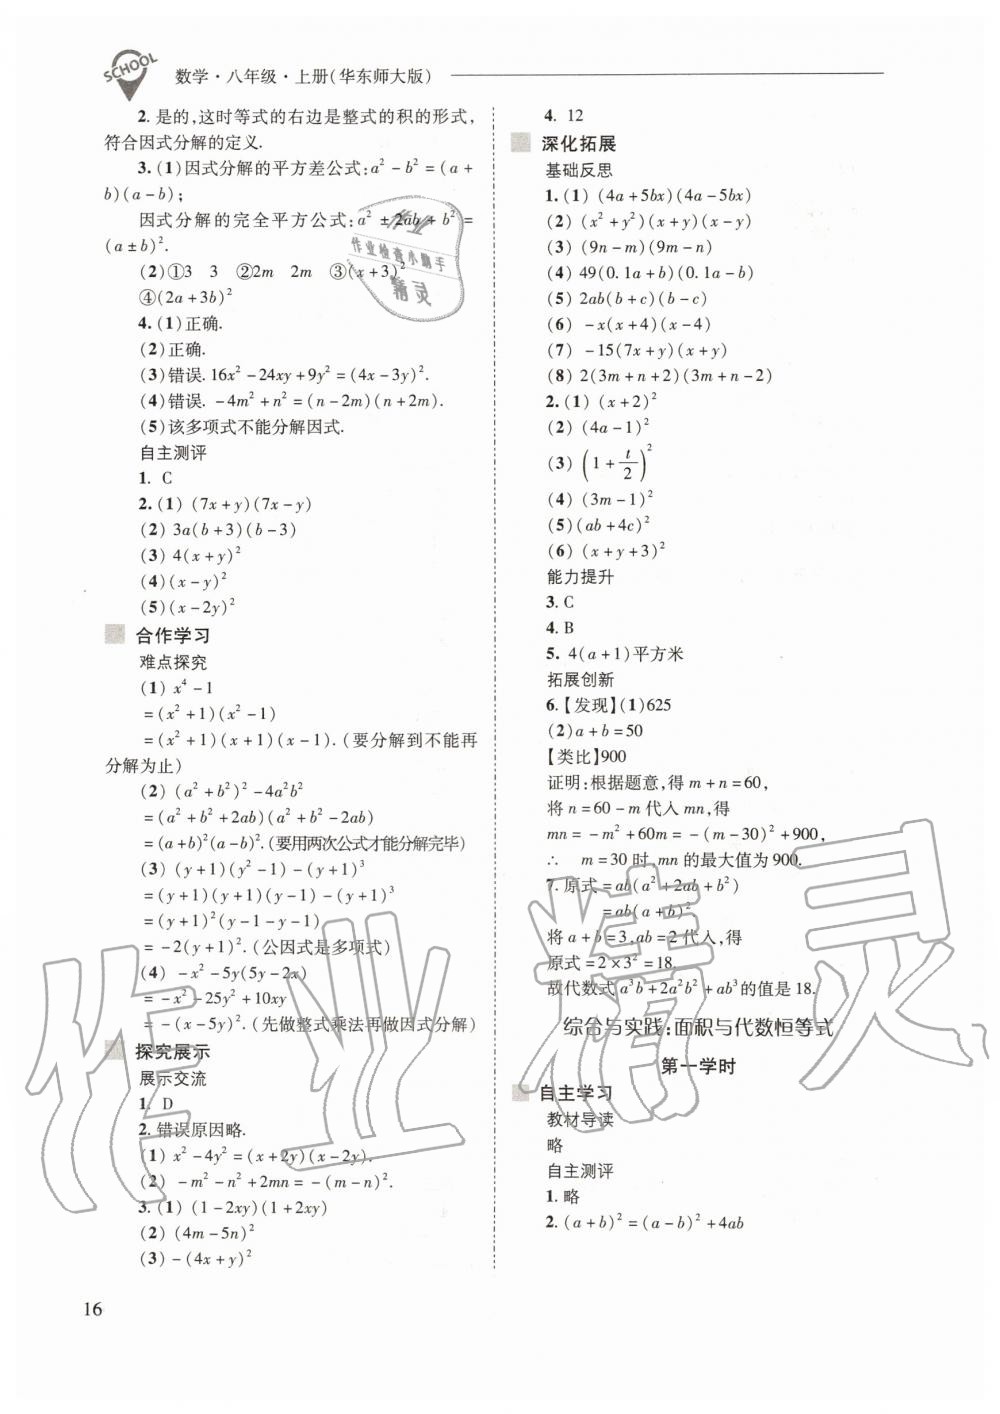 SCHOOL
数学·八年级·上册(华东师大版)
2. 是的,这时等式的右边是整式的积的形式,
符合因式分解的定义.
3. (1)因式分解的平方差公式:a²-b²=(a+
b)(a-b);
因式分解的完全平方公式:a²±2ab+b²=
(a±b)².
(2)①3 3 ②2m 2m ③(x+3)²
④(2a+3b)²
4. (1)正确.
(2)正确.
(3)错误.16x²-24xy+9y²=(4x-3y)².
(4)错误.-4m²+n²=(n-2m)(n+2m).
(5)该多项式不能分解因式.
自主测评
1. C
2. (1) (7x+y)(7x-y)
(2) 3a(b+3)(b-3)
(3) 4(x+y)²
(4)(x-y)²
(5)(x-2y)²
合作学习
难点探究
(1) x⁴-1
=(x²+1)(x²-1)
=(x²+1)(x+1)(x-1).(要分解到不能再
分解为止)
(2) (a²+b²)²-4a²b²
=(a²+b²+2ab)(a²+b²-2ab)
=(a+b)²(a-b)².(要用两次公式才能分解完毕)
(3) (y+1)(y²-1)-(y+1)³
=(y+1)(y+1)(y-1)-(y+1)³
=(y+1)²(y-1-y-1)
=-2(y+1)².(公因式是多项式)
(4) -x²-5y(5y-2x)
=-x²-25y²+10xy
=-(x-5y)².(先做整式乘法再做因式分解)
探究展示
展示交流
1. D
2. 错误原因略.
(1) x²-4y²=(x+2y)(x-2y).
(2) -m²-n²+2mn=-(m-n)².
3. (1) (1-2xy)(1+2xy)
(2) (4m-5n)²
(3)-(4x+y)²
16
4. 12
深化拓展
基础反思
1. (1) (4a+5bx)(4a-5bx)
(2) (x²+y²)(x+y)(x-y)
(3) (9n-m)(9m-n)
(4) 49(0.1a+b)(0.1a-b)
(5) 2ab(b+c)(b-c)
(6) -x(x+4)(x-4)
(7) -15(7x+y)(x+y)
(8) 2(3m+n+2)(3m+n-2)
2. (1) (x+2)²
(2) (4a-1)²
(3) (1+t/2)²
(4) (3m-1)²
(5)(ab+4c)²
(6) (x+y+3)²
能力提升
3. C
4. B
5. 4(a+1)平方米
拓展创新
6. 【发现】(1)625
(2)a+b=50
【类比】900
证明:根据题意,得 m+n=60,
将 n=60-m 代入 mn,得
mn=-m²+60m=-(m-30)²+900,
∴ m=30 时,mn 的最大值为 900.
7. 原式=ab(a²+2ab+b²)
=ab(a+b)².
将 a+b=3,ab=2 代入,得
原式=2×3²=18.
故代数式 a³b+2a²b²+ab³的值是 18.
综合与实践:面积与代数恒等式
第一学时
自主学习
教材导读
略
自主测评
1. 略
2. (a+b)²=(a-b)²+4ab
作业
作业检查小助手
精灵
作业精灵